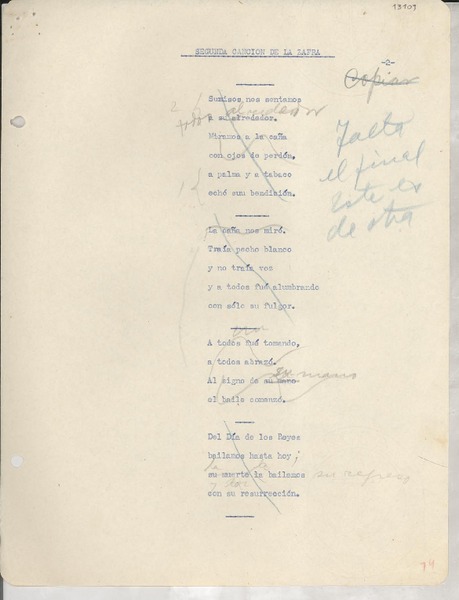 13103
SEGUNDA CANCION DE LA ZAFRA
-2-
Copiar
Sumisos nos sentamos
a su alrededor.
Miramos a la caña
con ojos de perdón,
a palma y a tabaco
echó sum bendición.
Falta
el final
Este es
de otra
La caña nos miró.
Traía pecho blanco
y no traía voz
y a todos fué alumbrando
con sólo su fulgor.
A todos fué tomando,
a todos abrazó.
Al signo de su mano
su mano
el baile comenzó.
Del Día de los Reyes
bailamos hasta hoy;
su muerte la bailamos
su regreso
con su resurrección.
74